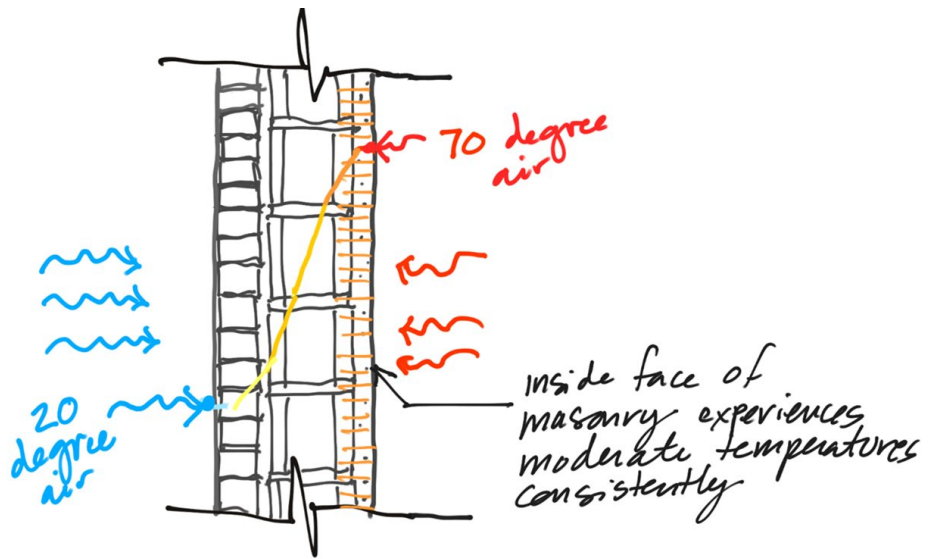 70 degree
air
20
degree
air
inside face of
masonry experiences
moderate temperatures
consistently